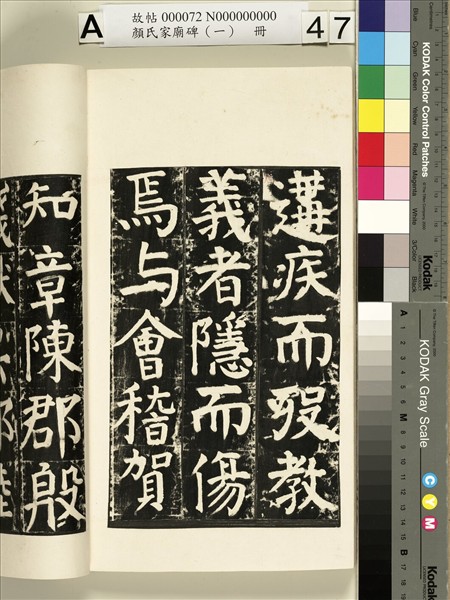 故帖 000072 N000000000
顏氏家廟碑（一） 冊
A
47
遘疾而歿教
義者隱而傷
焉与會稽賀
知章陳郡殷
KODAK Color Control Patches
Blue
Cyan
Green
Yellow
Red
Magenta
White
3/Color
Black
Kodak
KODAK Gray Scale
C Y M
Kodak
A 1 2 3 4 5 6 M 8 9 10 11 12 13 14 15 B 17 18 19